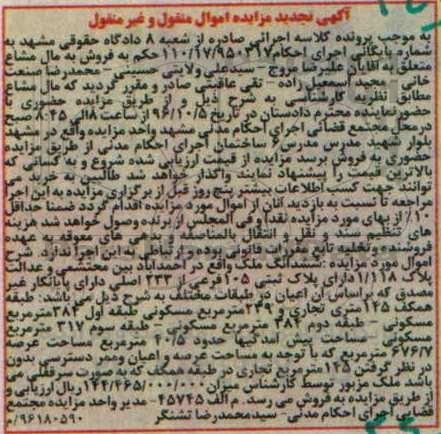 آگهی تجدید مزایده اموال منقول و غیر منقول
به موجب پرونده کلاسه اجرائی صادره از شعبه ۸ دادگاه حقوقی مشهد به
شماره بایگانی اجرای احکام ۱۱۰/۱۷/۹۵۰۳۱۷ حکم به فروش به مال مشاع
متعلق به آقایان علیرضا مروج – سیدعلی ولایتی حسینی – محمدرضا صنعت
خانی – مجید اسمعیل زاده – تقی عاقبتی صادر و مقرر گردید که مال مشاع
مطابق نظریه کارشناسی به شرح ذیل و از طریق مزایده حضوری با
حضور نماینده محترم دادستان در تاریخ ۹۶/۱۰/۵ از ساعت ۸ الی ۸:۴۵ صبح
در محل مجتمع قضائی اجرای احکام مدنی مشهد واحد مزایده واقع در مشهد
بلوار شهید مدرس مدرس ۶ ساختمان اجرای احکام مدنی از طریق مزایده
حضوری به فروش برسد مزایده از قیمت ارزیابی شده شروع و به کسانی که
بالاترین قیمت را پیشنهاد نمایند واگذار خواهد شد طالبین به خرید می
توانند جهت کسب اطلاعات بیشتر پنج روز قبل از برگزاری مزایده به این اجرا
مراجعه تا نسبت به بازدید آنان از اموال مورد مزایده اقدام گردد ضمنا حداقل
۱۰٪ از بهای مورد مزایده نقدا و فی المجلس از برنده وصول خواهد شد هزینه
های تنظیم سند و نقل و انتقال بالمناصفه و بدهی های معوقه به عهده
فروشنده و تخلیه تابع مقررات قانونی بوده و ارتباطی به این اجرا ندارد. شرح
اموال مورد مزایده: ششدانگ ملک واقع در احمدآباد بین محتشمی و عدالت
پلاک ۱/۱۱۸ دارای پلاک ثبتی ۱۰۵ فرعی از ۲۳۳ اصلی دارای پایانکار غیر
مصدق که براساس آن اعیان در طبقات مختلف به شرح ذیل می باشد: طبقه
همکف ۱۲۵ متری تجاری و ۲۳۹ مترمربع مسکونی طبقه اول ۳۸۴ مترمربع
مسکونی – طبقه دوم ۳۸۴ مترمربع مسکونی – طبقه سوم ۳۱۷ مترمربع
مسکونی – مساحت پیش آمدگیها حدود ۴۰/۵ مترمربع مساحت عرصه
۶۷۶/۷ مترمربع که با توجه به مساحت عرصه و اعیان وممر دسترسی بدون
در نظر گرفتن ۱۲۵ مترمربع تجاری در طبقه همکف که به صورت سرقفلی می
باشد ملک مزبور توسط کارشناس میزان ۱۴۴/۴۶۵/۰۰۰/۰۰۰ ریال ارزیابی و
از طریق مزایده به فروش می رسد. م الف ۴۵۷۴۵ – مدیر واحد مزایده مجتمع
قضایی اجرای احکام مدنی – سیدمحمدرضا تشنگر
۹۶۱۸۰۵۹۰/م